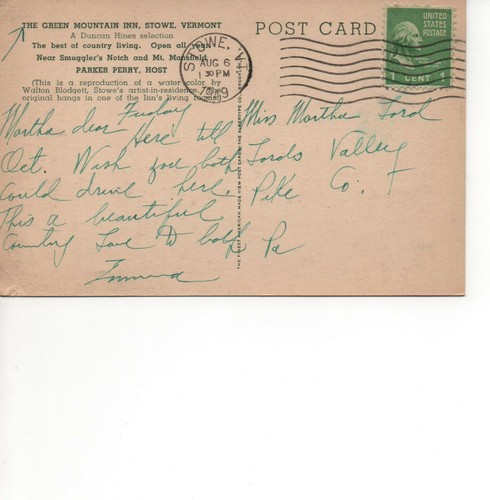 THE GREEN MOUNTAIN INN, STOWE, VERMONT
A Duncan Hines selection
The best of country living. Open all year
Near Smuggler's Notch and Mt. Mansfield
PARKER PERRY, HOST
(This is a reproduction of a water color by
Walton Blodgett, Stowe's artist-in-residence. The
original hangs in one of the Inn's living rooms)
POST CARD
STOWE, VT.
AUG 6
1 30 PM
1949
UNITED
STATES
POSTAGE
1 CENT 1
Martha dear Friday
Here till
Oct. Wish you both
Could drive here
This a beautiful
Country Love to both
Miss Martha Ford
Fords Valley
Pike Co.
Pa